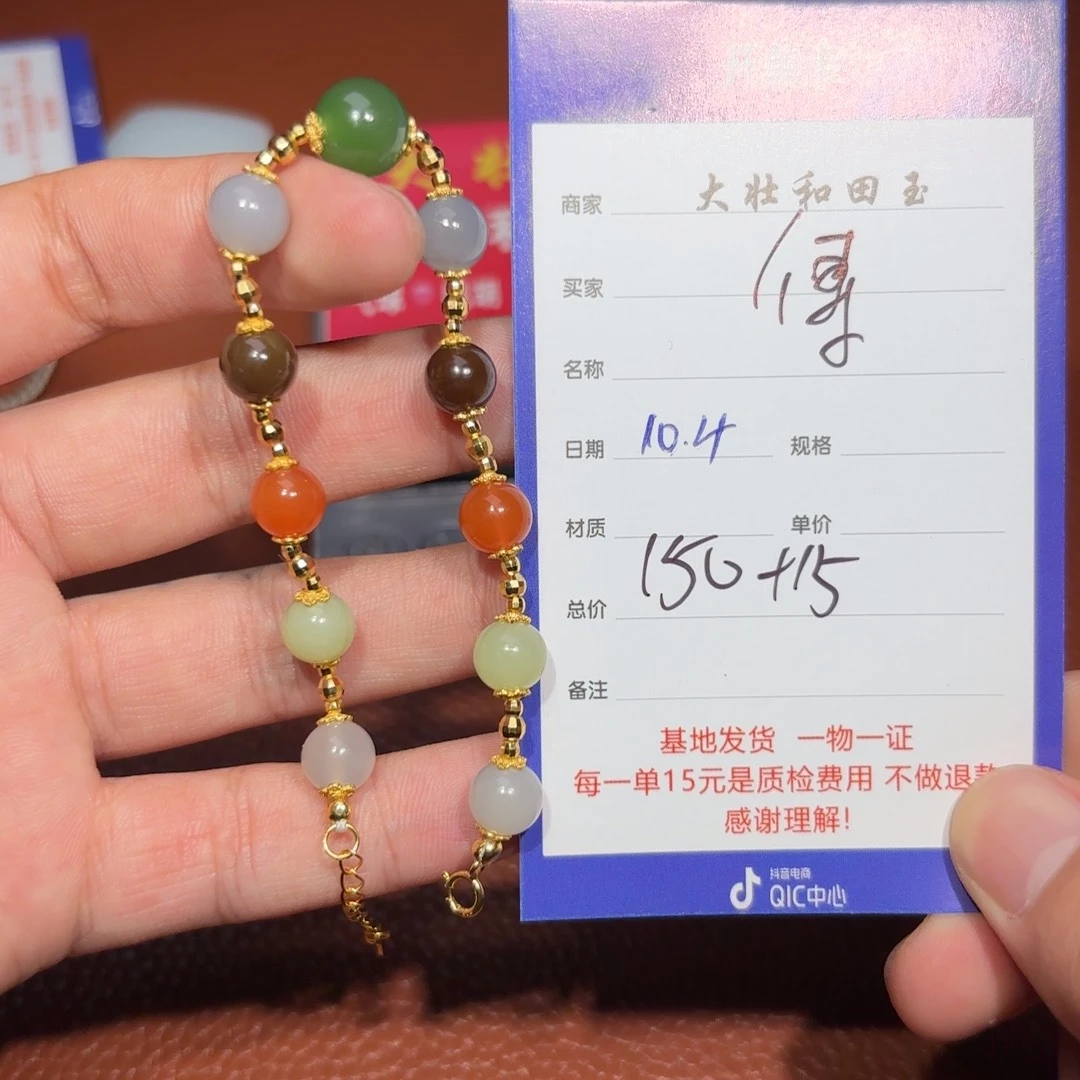 商家 大壮和田玉
买家 傅
名称
日期 10.4 规格
材质 单价
总价 150+15
备注
基地发货 一物一证
每一单15元是质检费用 不做退款
感谢理解!
抖音电商
QIC中心